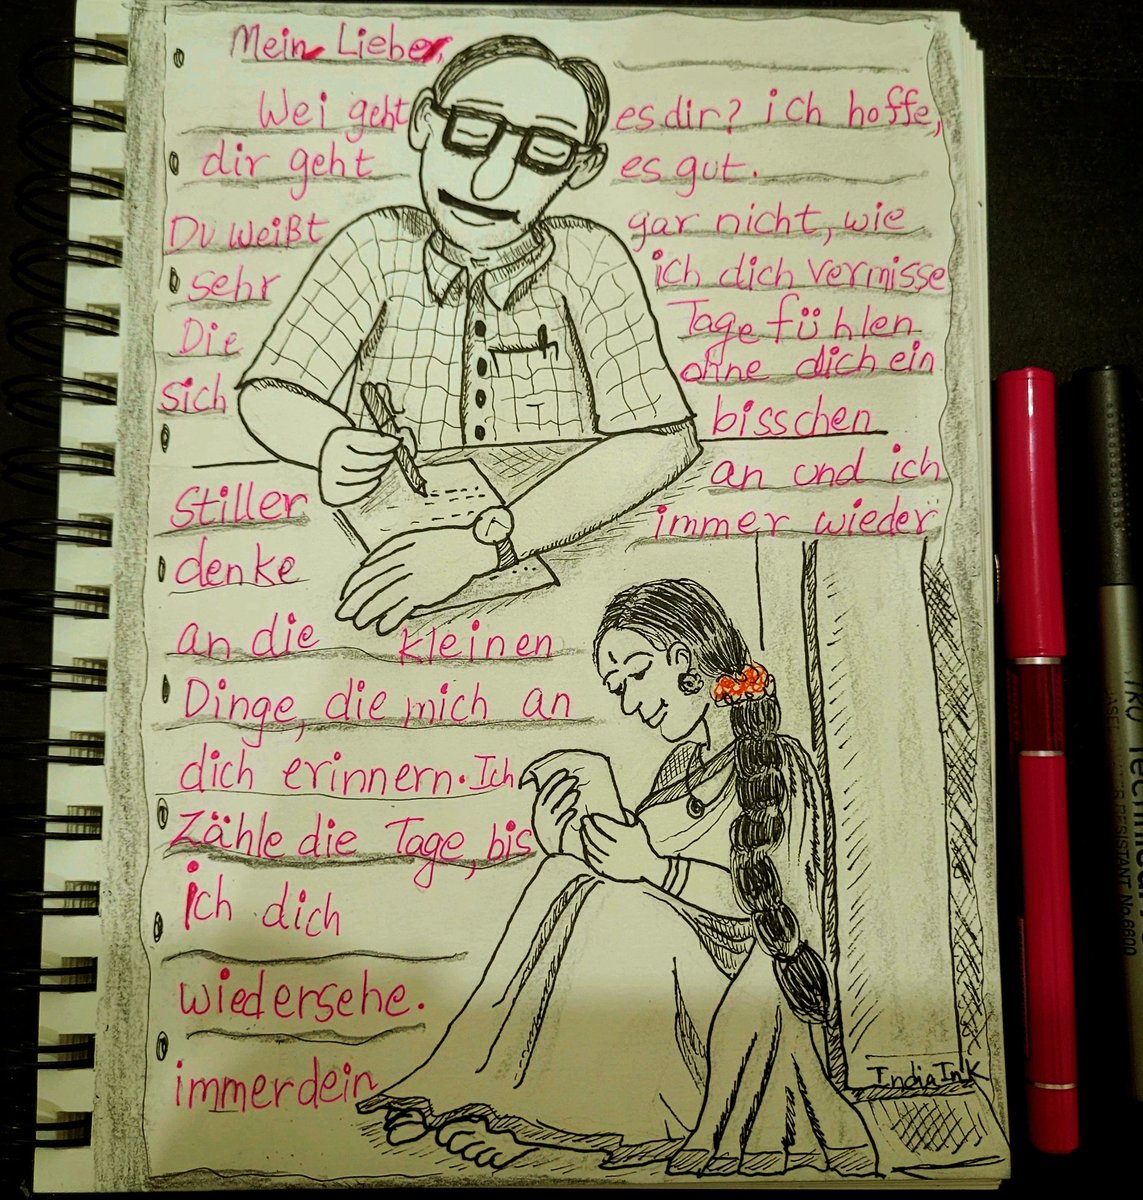 Mein Lieber,
Wei geht es dir? ich hoffe,
dir geht es gut.
Du weißt gar nicht, wie
sehr ich dich vermisse
Die Tage fühlen
sich ohne dich ein
bisschen
Stiller an und ich
denke immer wieder
an die kleinen
Dinge, die mich an
dich erinnern. Ich
Zähle die Tage, bis
ich dich
wiedersehe.
immer dein
India Ink